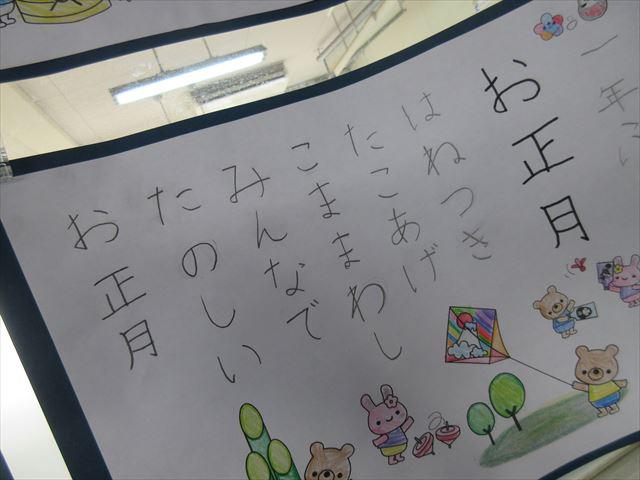 一年
お正月
はねつき
たこあげ
こままわし
みんなで
たのしい
お正月